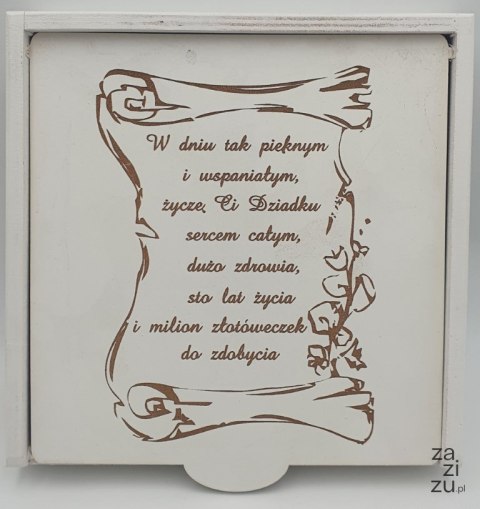 W dniu tak pięknym
i wspaniałym,
życzę Ci Dziadku
sercem całym,
dużo zdrowia,
sto lat życia
i milion złotóweczek
do zdobycia
za
zi
zu.pl